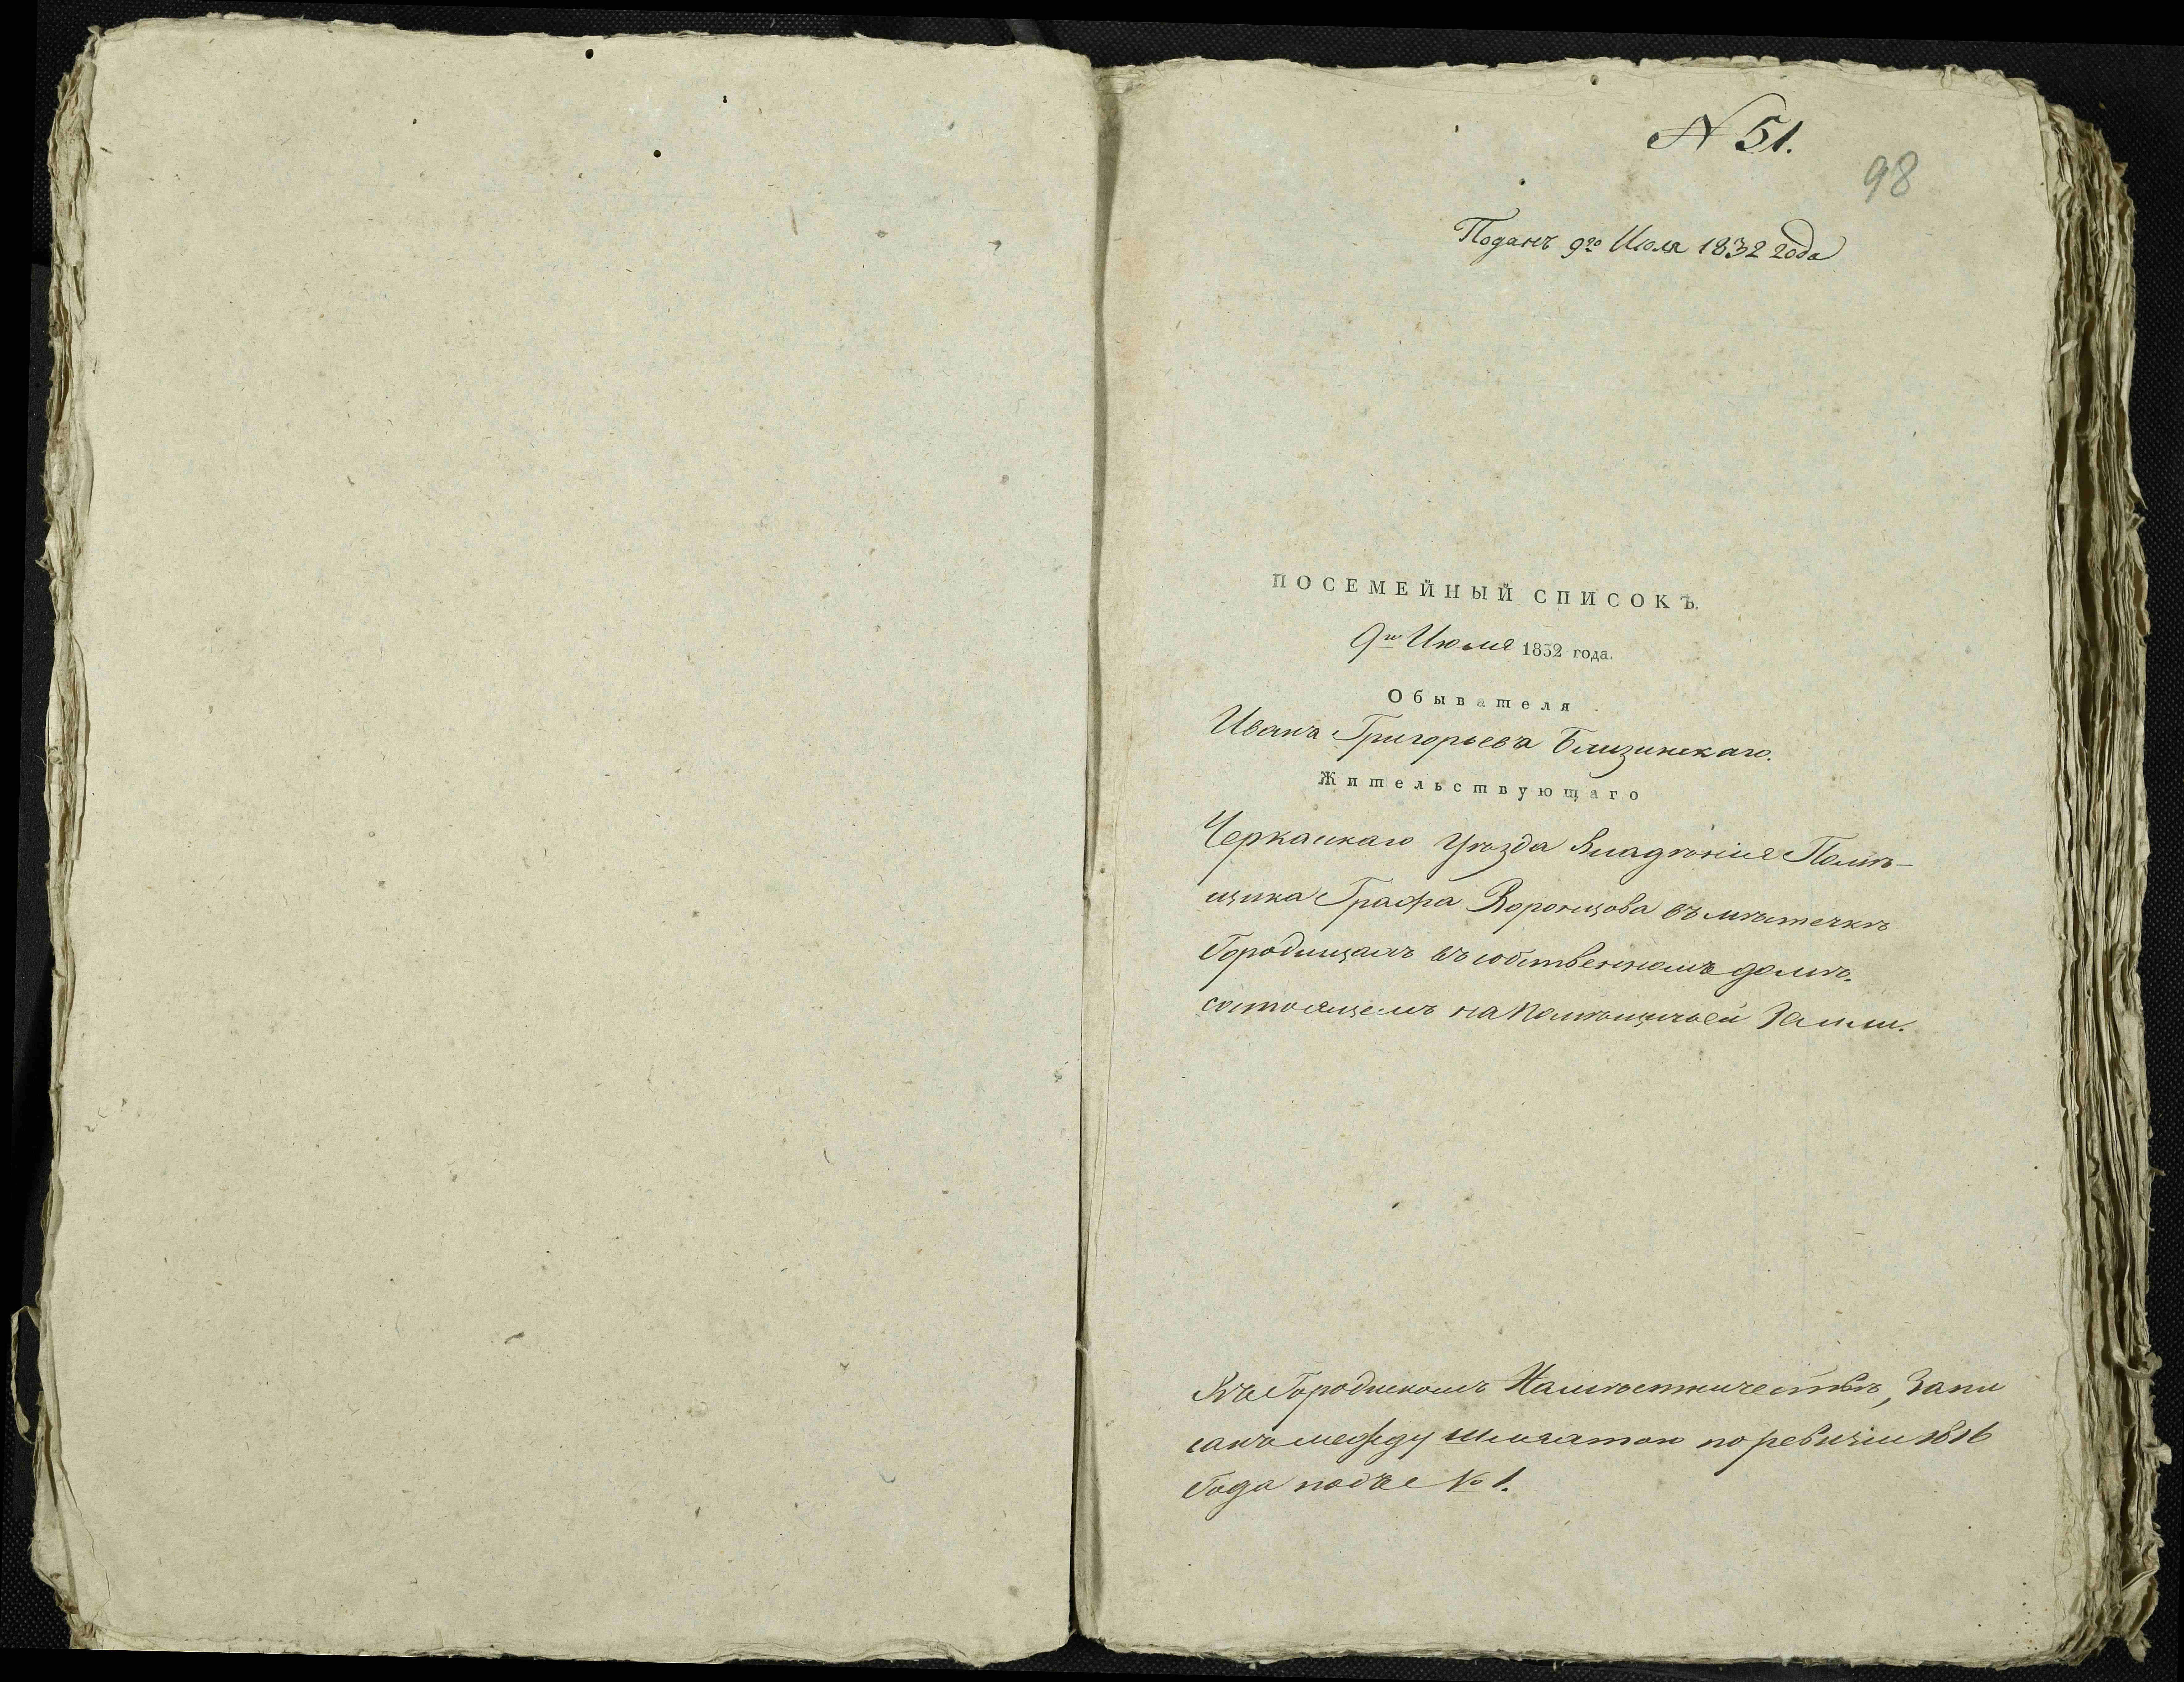 N 51.
98
Поданъ 9го Июля 1832 года
ПОСЕМЕЙНЫЙ СПИСОКЪ.
9го Июля 1832 года.
Обывателя
Ивана Григорьева Близинскаго.
Жительствующаго
Черкаскаго уѣзда владѣнія Помѣ-
щика Графа Воронцова въ мѣстечкѣ
Городищахъ въ собственномъ домѣ.
состоящемъ на помѣщичьей Земли.
Въ Городискомъ Намѣстничествѣ, Запи
санъ между шляхтою по ревизіи 1816
Года подъ № 1.